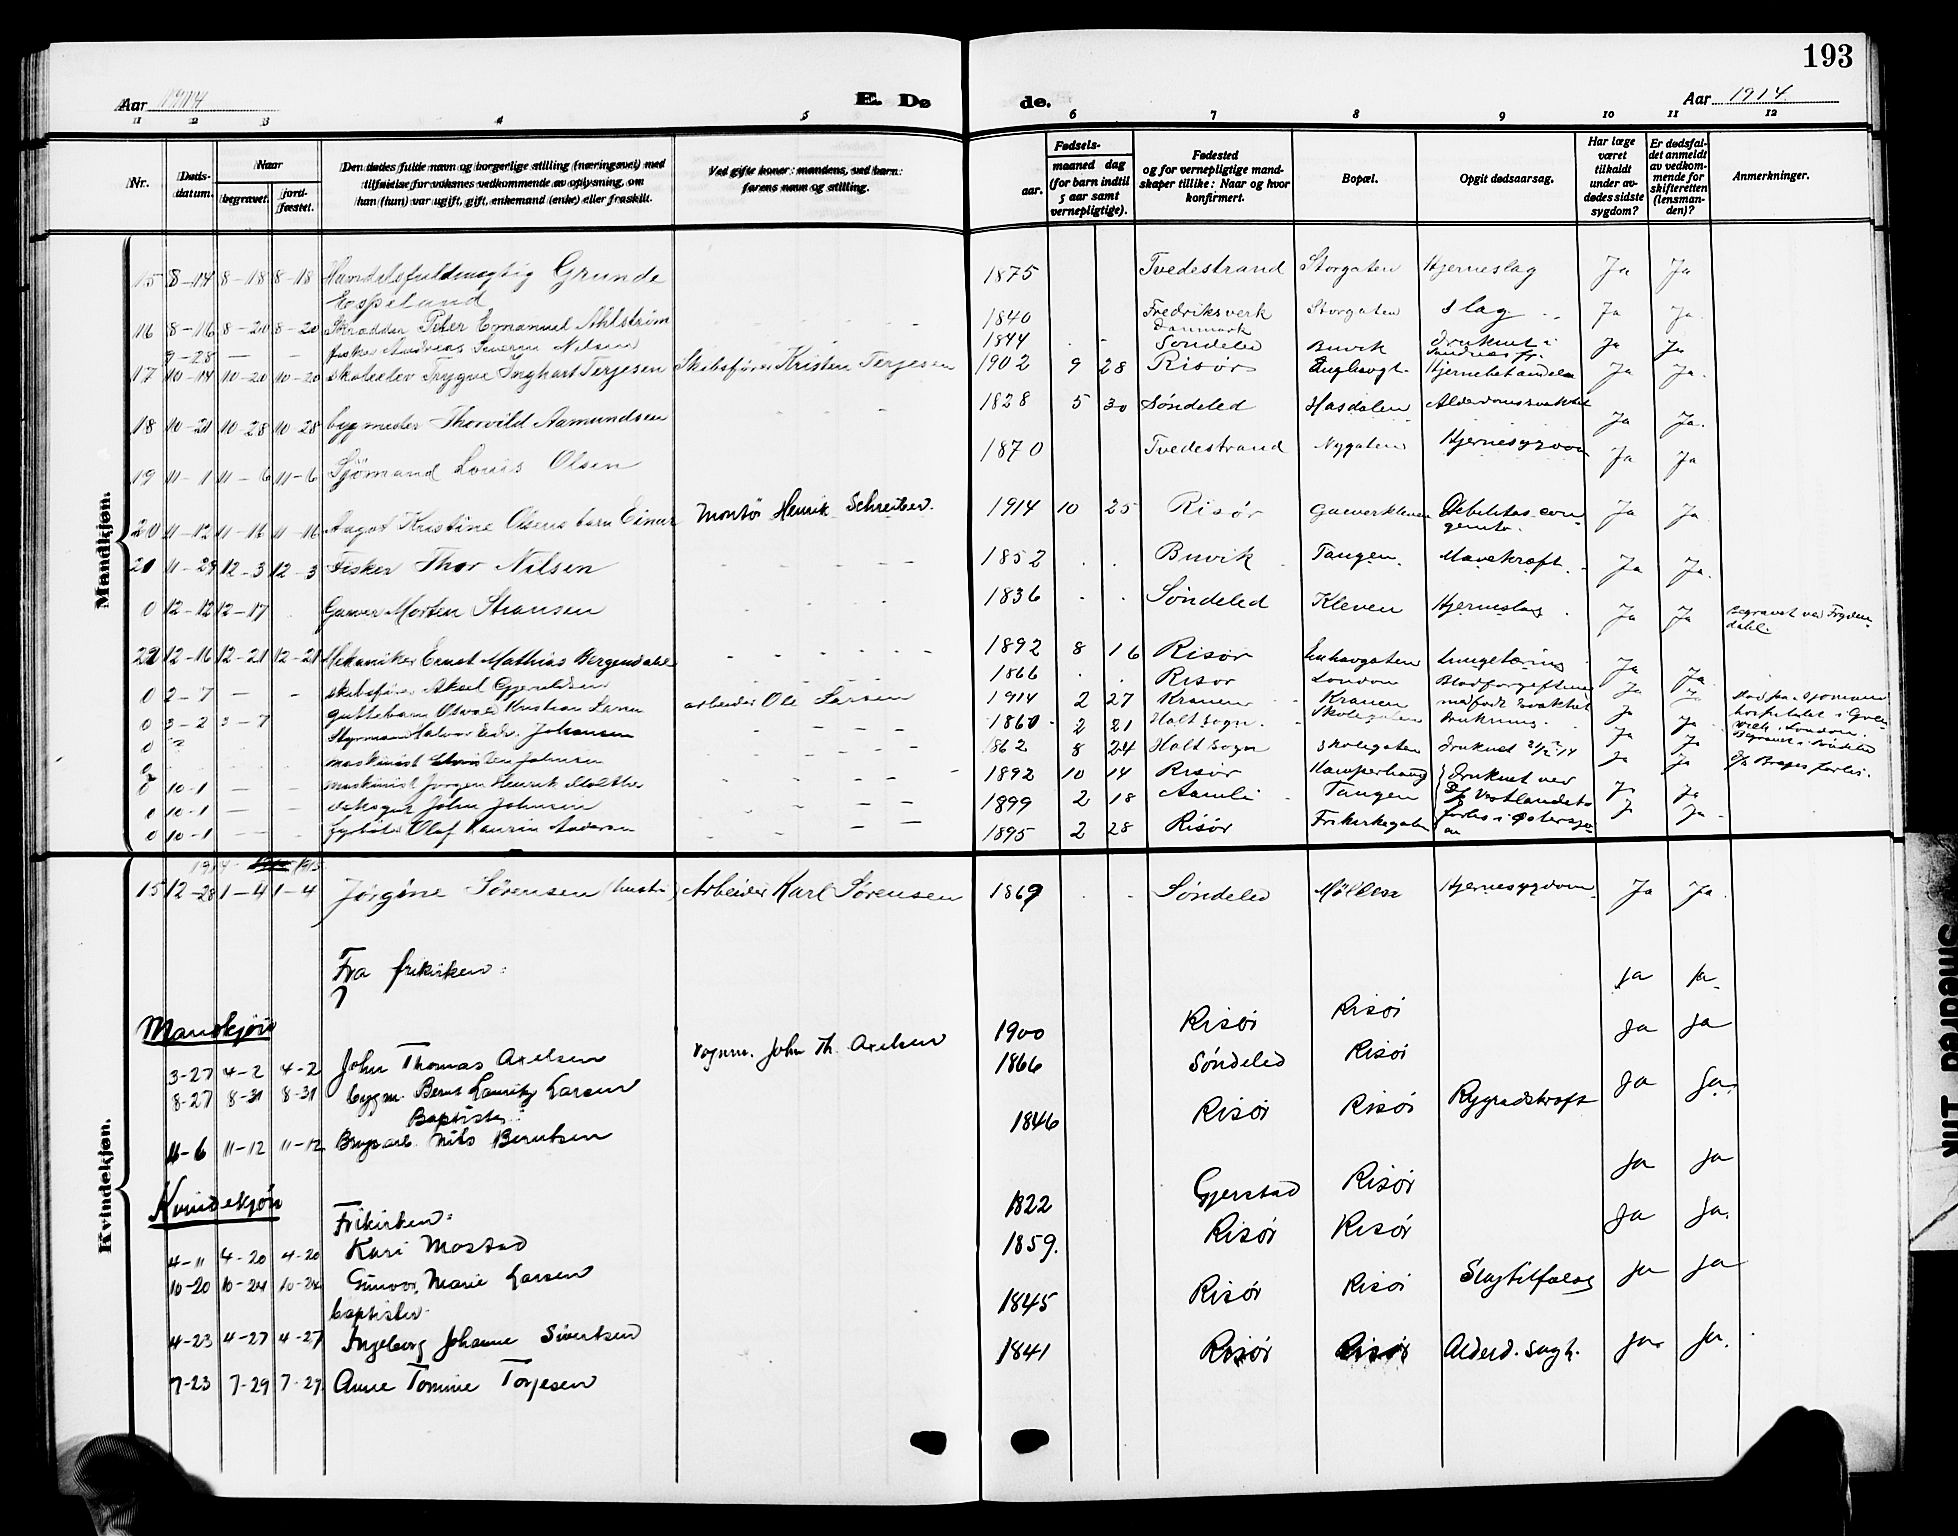 193
Aar 1914
E. Dø
de.
Aar 1914.
1 2 3 4 5 6 7 8 9 10 11 12
Nr.
Døds-
datum.
Naar
begravet.
jord-
fæstet.
Den dødes fulde navn og borgerlige stilling (næringsvei) med
tilføielse for voksnes vedkommende av oplysning, om
han (hun) var ugift, gift, enkemand (enke) eller fraskilt.
Ved gifte koner: mandens, ved barn:
farens navn og stilling.
Fødsels-
aar.
maaned dag
(for barn indtil
5 aar samt
vernepligtige).
Fødested
og for vernepligtige mand-
skaper tillike: Naar og hvor
konfirmert.
Bopæl.
Opgit dødsaarsag.
Har læge
været
tilkaldt
under av-
dødes sidste
sygdom?
Er dødsfal-
det anmeldt
av vedkom-
mende for
skifteretten
(lensman-
den)?
Anmerkninger.
Mandkjøn.
15 8-14 8-18 8-18 Handelsfuldmægtig Grunde Espeland 1875 Tvedestrand Storgaten Hjerneslag Ja Ja
16 8-16 8-20 8-20 Skrædder Peter Emanuel Ahlström 1840 Fredriksverk Danmark Storgaten slag Ja Ja
9-28 — fisker Andreas Severin Nilsen 1844 Søndeled Buvik druknet i Ja Ja
17 10-14 10-20 10-20 skoleelev Trygve Inghart Terjesen Skibsfører Kristen Terjesen 1902 9 28 Risør Hjernebetændelse Ja Ja.
18 10-21 10-28 10-28 bygmester Thorvild Aamundsen 1828 5 30 Søndeled Hasdalen Ja Ja.
19 11-1 11-6 11-6 Sjömand Louis Olsen 1870 Tvedestrand Nygaten Hjernesygdom Ja Ja
20 11-12 11-16 11-16 Aagot Kristine Olsens barn Einar Montør Henrik Schreiber. 1914 10 25 Risør Garverkleven Debilitas con-
genita. Ja Ja
21 11-29 12-3 12-3 Fisker Thor Nilsen 1852 Buvik Tangen. Mavekræft. Ja Ja.
0 12-12 12-17 Garver Morten Stiansen 1836 Søndeled Kleven Hjerneslag Ja Ja begravet ved Frydendahl
22 12-16 12-21 12-21 Mekaniker Ernst Mathias Bergendahl 1892 8 16 Risør Lungetæring Ja Ja.
0 2-7 — skibsfører Aksel Gjeruldsen 1866 Risør London Blodforgiftning Ja Ja
0 3-2 3-7 guttebarn Osvald Kristian Larsen arbeider Ole Larsen 1914 2 27 Kranen Kranen medfødt svakhet Ja Ja
0 Styrmand Halvor Edv. Johansen 1860 2 21 Holt sogn. Skolegaten drukning Ja Ja
0 maskinist Johnsen 1862 8 24 Holt sogn Skolegaten druknet Ja Ja
0 10-1 — maskinist Jørgen Henrik Molther 1892 10 14 Risør Kamperhaug druknet ved Ja Ja
0 10-1 — dæksgut John Johnsen 1899 2 18 Aamli Tangen D/S Vestlandets Ja Ja
0 10-1 — fyrbøter Olaf Laurin Andersen 1895 2 28 Risør Frikirkegaten forlis i Østersjøen
Kvindekjøn.
1914 1915
15 12-28 1-4 1-4 Jørgine Sørensen (hustru) Arbeider Karl Sørensen 1869 Søndeled Hjernesygdom Ja Ja.
Fra frikirken: Ja Ja.
Manskjøn
3-27 4-2 4-2 John Thomas Axelsen Vognm. John Th. Axelsen 1900 Risør Risør Ja Ja
8-27 8-31 8-31 bygm. Bernt Lauritz Larsen 1866 Søndeled Risør Ja Ja.
Baptister:
11-6 11-12 11-12 Brugsarb. Nils Berntsen 1846 Risør Risør Rygradskræft
Kvindekjøn
Frikirken:
4-11 4-20 4-20 Kari Mostad 1822 Gjerstad Risør Ja Ja
10-20 10-24 10-24 Gunvor Marie Larsen 1859. Risør Risør Ja Ja.
baptister
4-23 4-27 4-27 Ingeborg Johanne Sivertsen 1845 Risør Risør Slagtilfælde Ja Ja
7-23 7-29 7-29 Anne Tomine Torjesen 1841 Risør Risør Alderd. svagh. Ja. Ja.
Smeared Ink